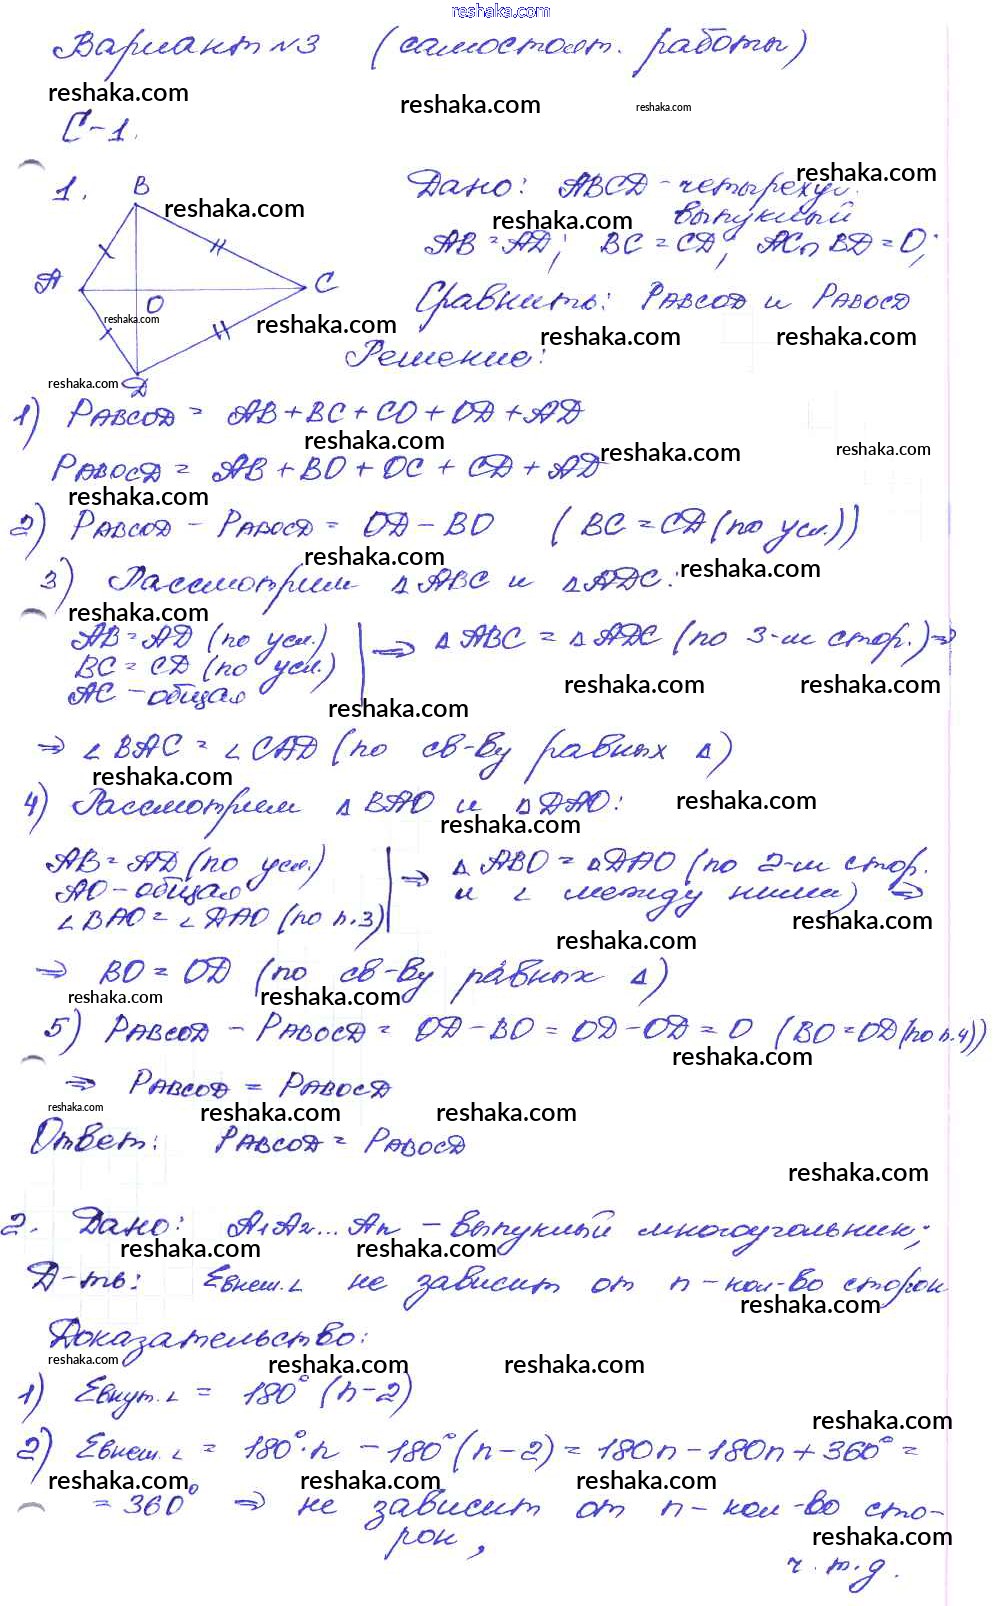 reshaka.com
Вариант №3 (самостоят. работы)
reshaka.com reshaka.com reshaka.com
С-1.
reshaka.com
1. B Дано: ABCD - четырехуг.
reshaka.com reshaka.com выпуклый
AB = AD; BC = CD; AC∩BD = O;
A C
O Сравнить: PABCOD и PABOCD
reshaka.com reshaka.com reshaka.com reshaka.com
Решение:
reshaka.com D
1) PABCOD = AB + BC + CO + OD + AD
reshaka.com reshaka.com reshaka.com
PABOCD = AB + BO + OC + CD + AD
reshaka.com
2) PABCOD - PABOCD = OD - BO (BC = CD (по усл.))
reshaka.com reshaka.com
3) Рассмотрим ΔABC и ΔADC:
reshaka.com
AB = AD (по усл.)
BC = CD (по усл.) ⇒ ΔABC = ΔADC (по 3-м стор.) ⇒
AC - общая
reshaka.com reshaka.com reshaka.com
⇒ ∠BAC = ∠CAD (по св-ву равных Δ)
reshaka.com
4) Рассмотрим ΔBAO и ΔDAO:
reshaka.com reshaka.com
AB = AD (по усл.) ⇒ ΔABO = ΔDAO (по 2-м стор.
AO - общая и ∠ между ними) ⇒
∠BAO = ∠DAO (по п.3)
reshaka.com reshaka.com
⇒ BO = OD (по св-ву равных Δ)
reshaka.com reshaka.com
5) PABCOD - PABOCD = OD - BO = OD - OD = 0 (BO = OD (по п.4))
reshaka.com
⇒ PABCOD = PABOCD
reshaka.com reshaka.com reshaka.com
Ответ: PABCOD = PABOCD
reshaka.com
2. Дано: A1A2...An - выпуклый многоугольник;
reshaka.com reshaka.com
Д-ть: Σвнеш.∠ не зависит от n - кол-во сторон
reshaka.com
Доказательство:
reshaka.com reshaka.com reshaka.com
1) Σвнут.∠ = 180°(n-2)
reshaka.com
2) Σвнеш.∠ = 180°·n - 180°(n-2) = 180n - 180n + 360° =
reshaka.com reshaka.com reshaka.com
= 360° ⇒ не зависит от n - кол-во сто-
reshaka.com
рон,
ч.т.д.